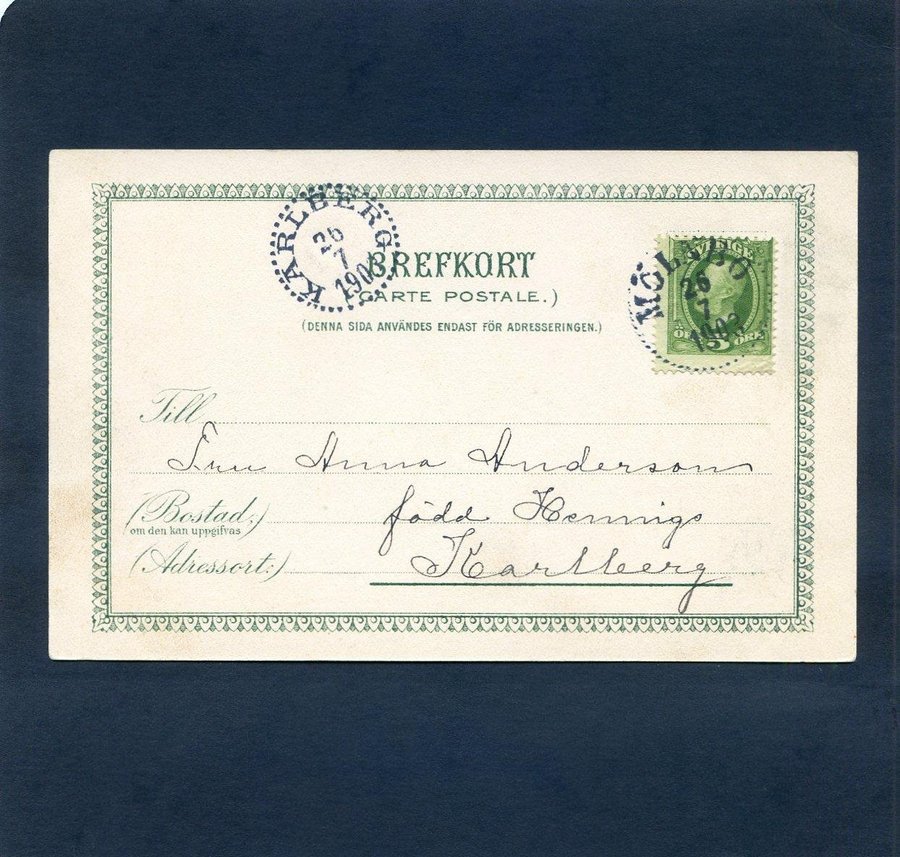 KARLBERG
26
7
190
BREFKORT
(CARTE POSTALE.)
(DENNA SIDA ANVÄNDES ENDAST FÖR ADRESSERINGEN.)
SVERIGE
MÖLNBO
26
7
1903
5
ÖRE
Till
Fru Anna Anderson
(Bostad:)
om den kan uppgifvas
född Hennigs
(Adressort:)
Karlberg